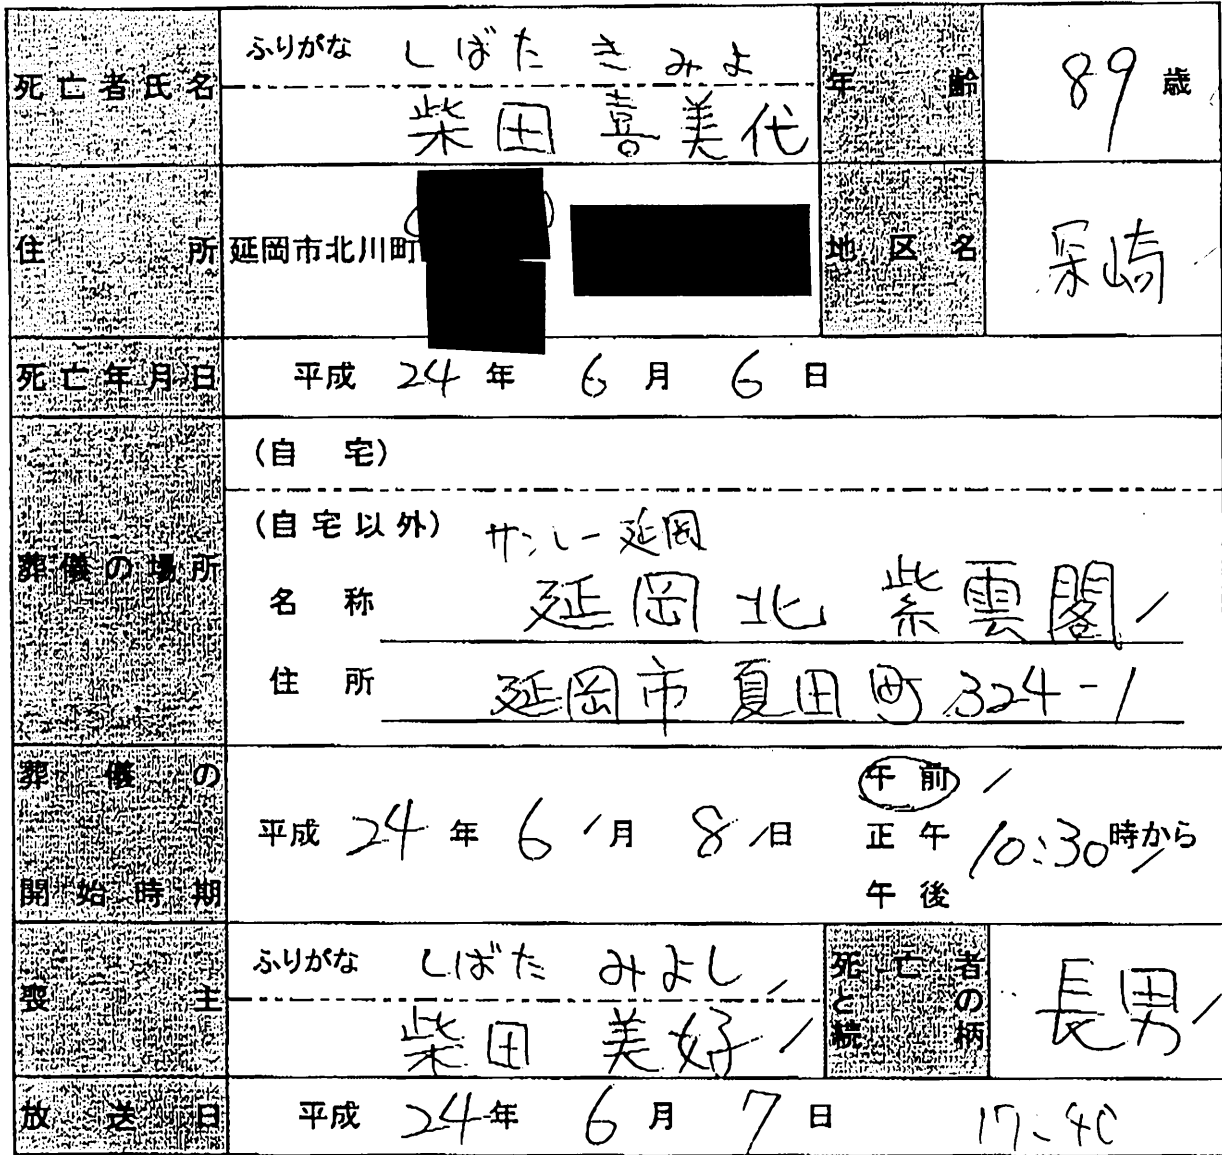 死亡者氏名 ふりがな しばた きみよ 年齢 89 歳
柴田 喜美代
住所 延岡市北川町 地区名 崎
死亡年月日 平成 24 年 6 月 6 日
葬儀の場所 (自 宅)
(自宅以外) サンレー延岡
名 称 延岡北 紫雲閣
住 所 延岡市 夏田町 324-1
葬儀の開始時期 平成 24 年 6 月 8 日 午前 正午 午後 10:30 時から
喪主 ふりがな しばた みよし 死亡者との続柄 長男
柴田 美好
放送日 平成 24 年 6 月 7 日 17:40